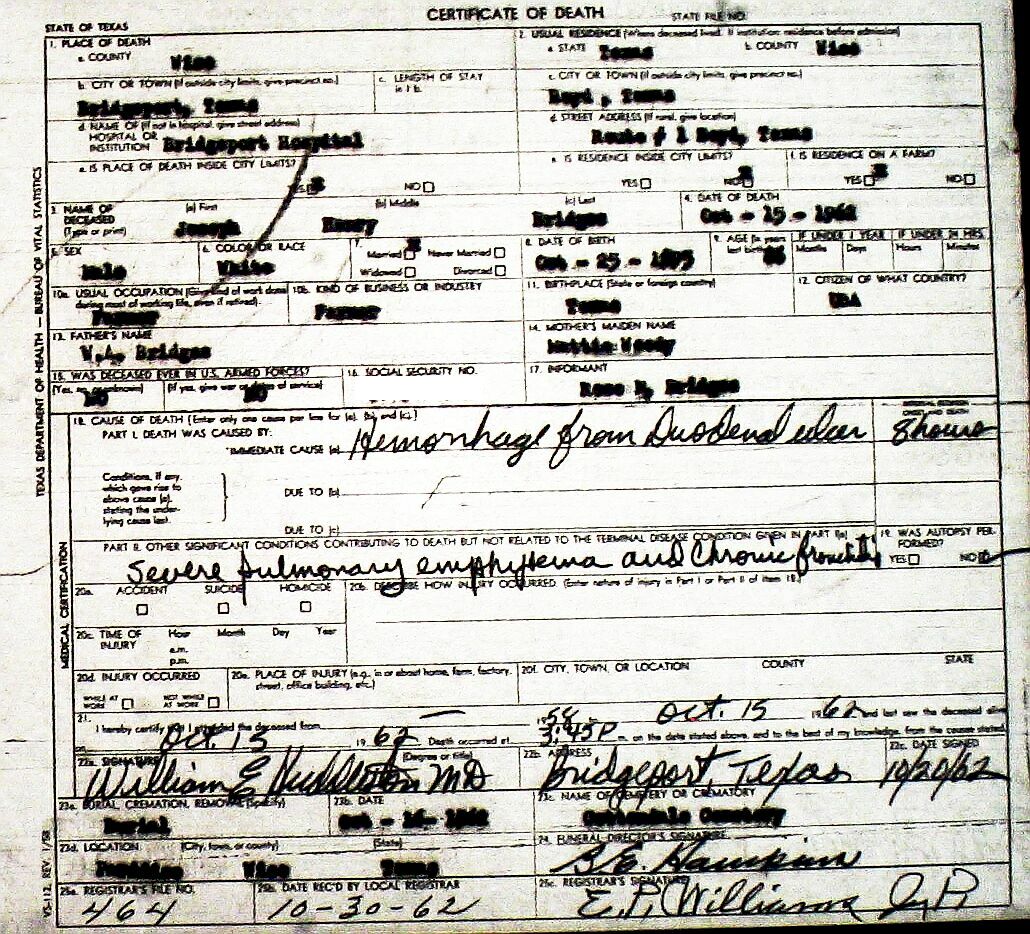 CERTIFICATE OF DEATH
STATE OF TEXAS STATE FILE NO.
1. PLACE OF DEATH
a. COUNTY Wise
2. USUAL RESIDENCE (Where deceased lived. If institution: residence before admission)
a. STATE Texas b. COUNTY Wise
b. CITY OR TOWN (If outside city limits, give precinct no.)
Bridgeport, Texas
c. LENGTH OF STAY in 1 b.
c. CITY OR TOWN (If outside city limits, give precinct no.)
Boyd, Texas
d. NAME OF (If not in hospital, give street address)
HOSPITAL OR INSTITUTION Bridgeport Hospital
d. STREET ADDRESS (If rural, give location)
Route # 1 Boyd, Texas
e. IS PLACE OF DEATH INSIDE CITY LIMITS?
YES X NO
e. IS RESIDENCE INSIDE CITY LIMITS?
YES NO X
f. IS RESIDENCE ON A FARM?
YES X NO
3. NAME OF DECEASED (Type or print)
(a) First (b) Middle (c) Last
Joseph Henry Bridges
4. DATE OF DEATH
Oct - 15 - 1962
5. SEX
Male
6. COLOR OR RACE
White
7. Married X Never Married
Widowed Divorced
8. DATE OF BIRTH
Oct - 25 - 1875
9. AGE (In years last birthday) 86
IF UNDER 1 YEAR IF UNDER 24 HRS.
Months Days Hours Minutes
10a. USUAL OCCUPATION (Give kind of work done during most of working life, even if retired)
Farmer
10b. KIND OF BUSINESS OR INDUSTRY
Farmer
11. BIRTHPLACE (State or foreign country)
Texas
12. CITIZEN OF WHAT COUNTRY?
USA
13. FATHER'S NAME
W.A. Bridges
14. MOTHER'S MAIDEN NAME
Mattie Woody
15. WAS DECEASED EVER IN U.S. ARMED FORCES?
(Yes, no, or unknown) (If yes, give war or dates of service)
NO NO
16. SOCIAL SECURITY NO.
17. INFORMANT
Bridges
18. CAUSE OF DEATH (Enter only one cause per line for (a), (b), and (c).)
PART I. DEATH WAS CAUSED BY:
INTERVAL BETWEEN ONSET AND DEATH
*IMMEDIATE CAUSE (a) Hemorrhage from Duodenal ulcer 8 hours
Conditions, if any, which gave rise to above cause (a), stating the underlying cause last.
DUE TO (b)
DUE TO (c)
PART II. OTHER SIGNIFICANT CONDITIONS CONTRIBUTING TO DEATH BUT NOT RELATED TO THE TERMINAL DISEASE CONDITION GIVEN IN PART I(a)
Severe pulmonary emphysema and Chronic bronchitis
19. WAS AUTOPSY PERFORMED?
YES NO X
20a. ACCIDENT SUICIDE HOMICIDE
20b. DESCRIBE HOW INJURY OCCURRED. (Enter nature of injury in Part I or Part II of item 18.)
20c. TIME OF INJURY Hour Month Day Year
a.m.
p.m.
20d. INJURY OCCURRED
WHILE AT WORK NOT WHILE AT WORK
20e. PLACE OF INJURY (e.g., in or about home, farm, factory, street, office building, etc.)
20f. CITY, TOWN, OR LOCATION COUNTY STATE
21. I hereby certify that I attended the deceased from — 1958 Oct. 15 1962 and last saw the deceased alive
on Oct. 15 1962 Death occurred at 3:45 P m. on the date stated above, and to the best of my knowledge, from the causes stated.
22a. SIGNATURE (Degree or title)
William E Huddleston MD
22b. ADDRESS
Bridgeport, Texas
22c. DATE SIGNED
10/20/62
23a. BURIAL, CREMATION, REMOVAL (Specify)
Burial
23b. DATE
Oct - 16 - 1962
23c. NAME OF CEMETERY OR CREMATORY
Cottondale Cemetery
23d. LOCATION (City, town, or county) (State)
Wise Texas
24. FUNERAL DIRECTOR'S SIGNATURE
25a. REGISTRAR'S FILE NO.
464
25b. DATE REC'D BY LOCAL REGISTRAR
10-30-62
25c. REGISTRAR'S SIGNATURE
E.P. Williams J.P.
TEXAS DEPARTMENT OF HEALTH — BUREAU OF VITAL STATISTICS
MEDICAL CERTIFICATION
VS-112, REV. 1/58